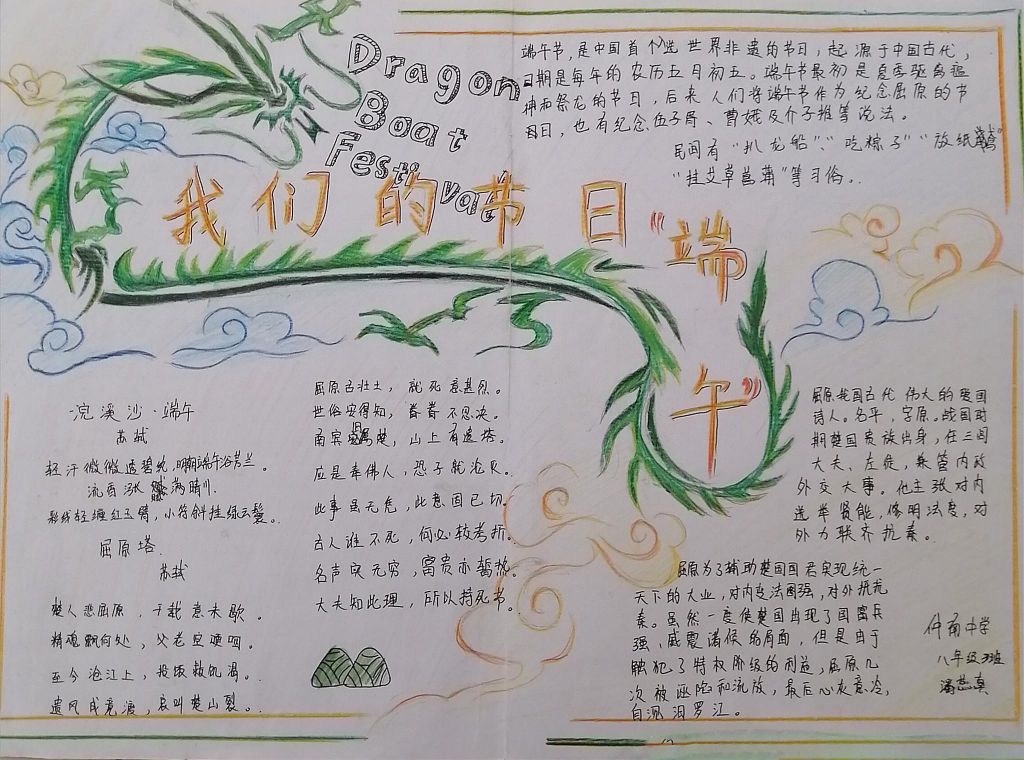 Dragon
Boat
Festival
我们的节日"端
午"
端午节,是中国首个入选世界非遗的节日,起源于中国古代,
日期是每年的农历五月初五。端午节最初是夏季驱离瘟
神和祭龙的节日,后来人们将端午节作为纪念屈原的节
日,也有纪念伍子胥、曹娥及介子推等说法。
民间有"扒龙船"、"吃粽子""放纸鸢"
"挂艾草菖蒲"等习俗。
浣溪沙·端午
苏轼
轻汗微微透碧纨,明朝端午浴芳兰。
流香涨满晴川。
彩线轻缠红玉臂,小符斜挂绿云鬟。
屈原塔
苏轼
楚人悲屈原,千载意未歇。
精魂飘何处,父老空哽咽。
至今沧江上,投饭救饥渴。
遗风成竞渡,哀叫楚山裂。
屈原古壮士,就死意甚烈。
世俗安得知,眷眷不忍决。
南宾旧属楚,山上有遗塔。
应是奉佛人,恐子就沦灭。
此事虽无凭,此意固已切。
古人谁不死,何必较考折。
名声实无穷,富贵亦暂热。
大夫知此理,所以持死节。
屈原我国古代伟大的爱国
诗人。名平,字原。战国时
期楚国贵族出身,任三闾
大夫、左徒,兼管内政
外交大事。他主张对内
选举贤能,修明法度,对
外力联齐抗秦。
屈原为了辅助楚国国君实现统一
天下的大业,对内变法图强,对外抵抗
秦。虽然一度使楚国出现了国富兵
强、威震诸侯的局面,但是由于
触犯了特权阶级的利益,屈原几
次被诬陷和流放,最后心灰意冷,
自溺汨罗江。
中学
八年级